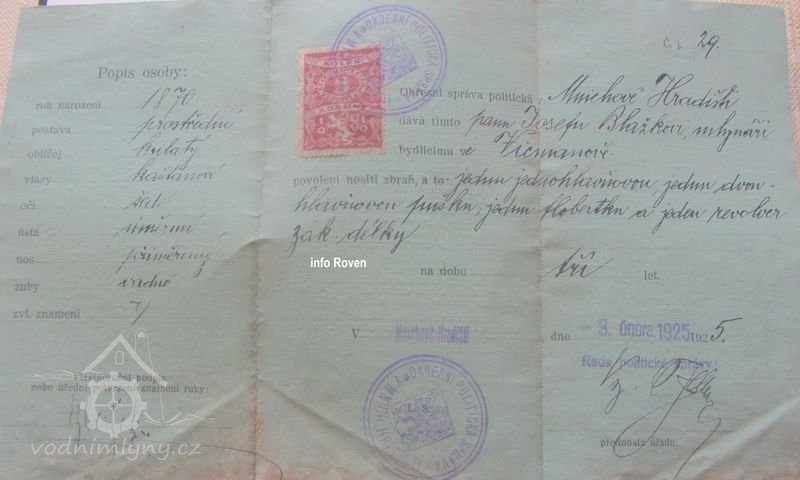 Popis osoby:
rok narození 1870
postava prostřední
obličej kulatý
vlasy kaštanové
oči šedé
ústa úměrná
nos přiměřený
zuby řadné
zvl. znamení
Vlastnoruční podpis
nebo úřední potvrzení znamení ruky:
OKRESNÍ POLITICKÁ SPRÁVA
KOLEK
Č. j. 29.
Okresní správa politická v Mnichově Hradišti
dává tímto panu Josefu Blažkovi, mlynáři
bydlícímu ve Vicmanově
povolení nositi zbraň, a to: jednu jednohlavňovou, jednu dvou-
hlavňovou pušku, jednu flobertku a jeden revolver
zák. délky
info Roven
na dobu tří let.
V Mnichově Hradišti dne - 3. února 1925 1925.
Rada politické správy:
L. S.
OKRESNÍ POLITICKÁ SPRÁVA
přednosta úřadu.
vodnimlyny.cz